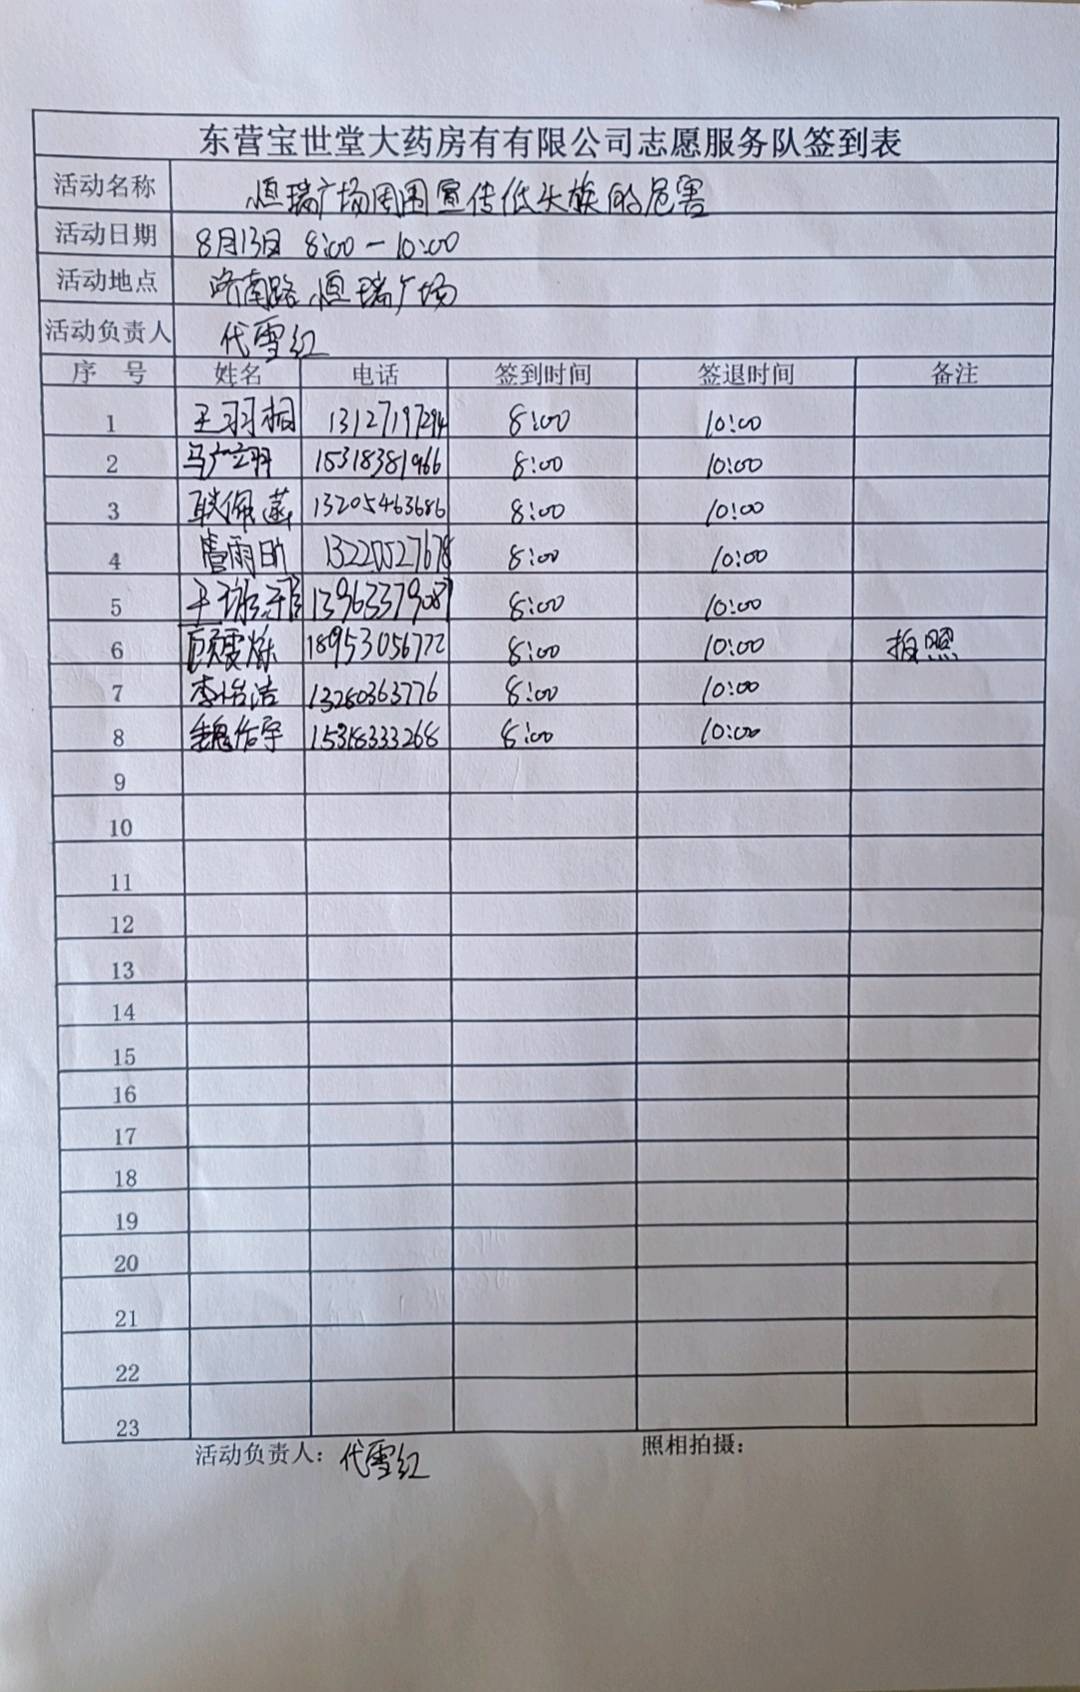 东营宝世堂大药房有有限公司志愿服务队签到表
活动名称 恒瑞广场周围宣传低头族的危害
活动日期 8月13日 8:00-10:00
活动地点 济南路恒瑞广场
活动负责人 代雪红
序号 姓名 电话 签到时间 签退时间 备注
1 王羽桐 13127197294 8:00 10:00
2 马广立羽 15318381966 8:00 10:00
3 耿佩菡 13205463686 8:00 10:00
4 雨 13220527678 8:00 10:00
5 王 13963379087 8:00 10:00
6 顾雯 18953056772 8:00 10:00 拍照
7 李怡洁 13280363776 8:00 10:00
8 魏佑宇 15318333268 8:00 10:00
9
10
11
12
13
14
15
16
17
18
19
20
21
22
23
活动负责人：代雪红 照相拍摄：